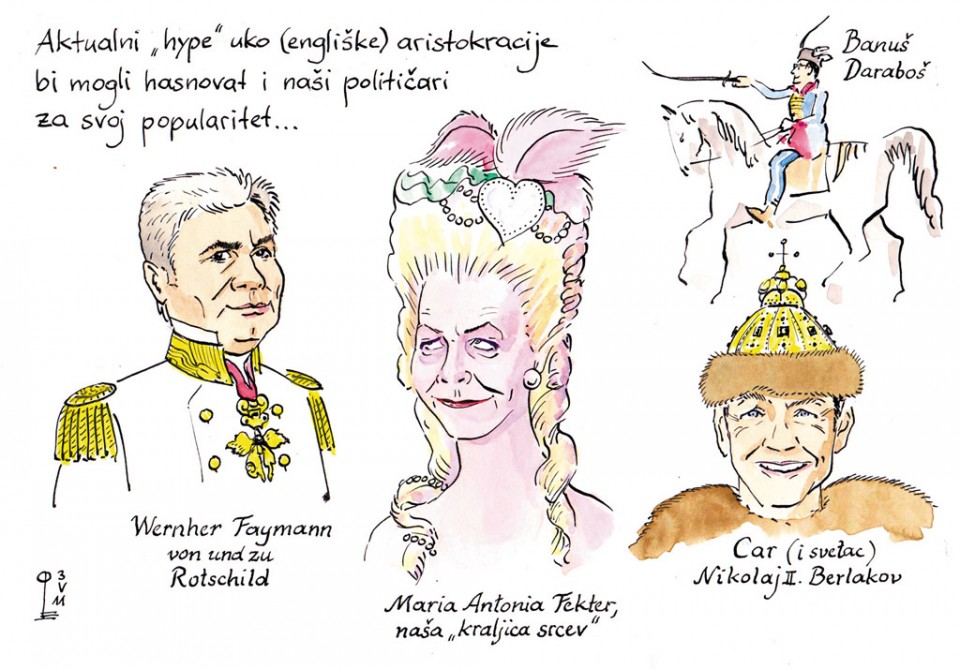 Aktualni „hype“ uko (engliške) aristokracije
bi mogli hasnovat i naši političari
za svoj popularitet...
Banuš
Daraboš
Wernher Faymann
von und zu
Rotschild
Maria Antonia Fekter,
naša „kraljica srcev“
Car (i svetac)
Nikolaj II. Berlakov
3
V
11